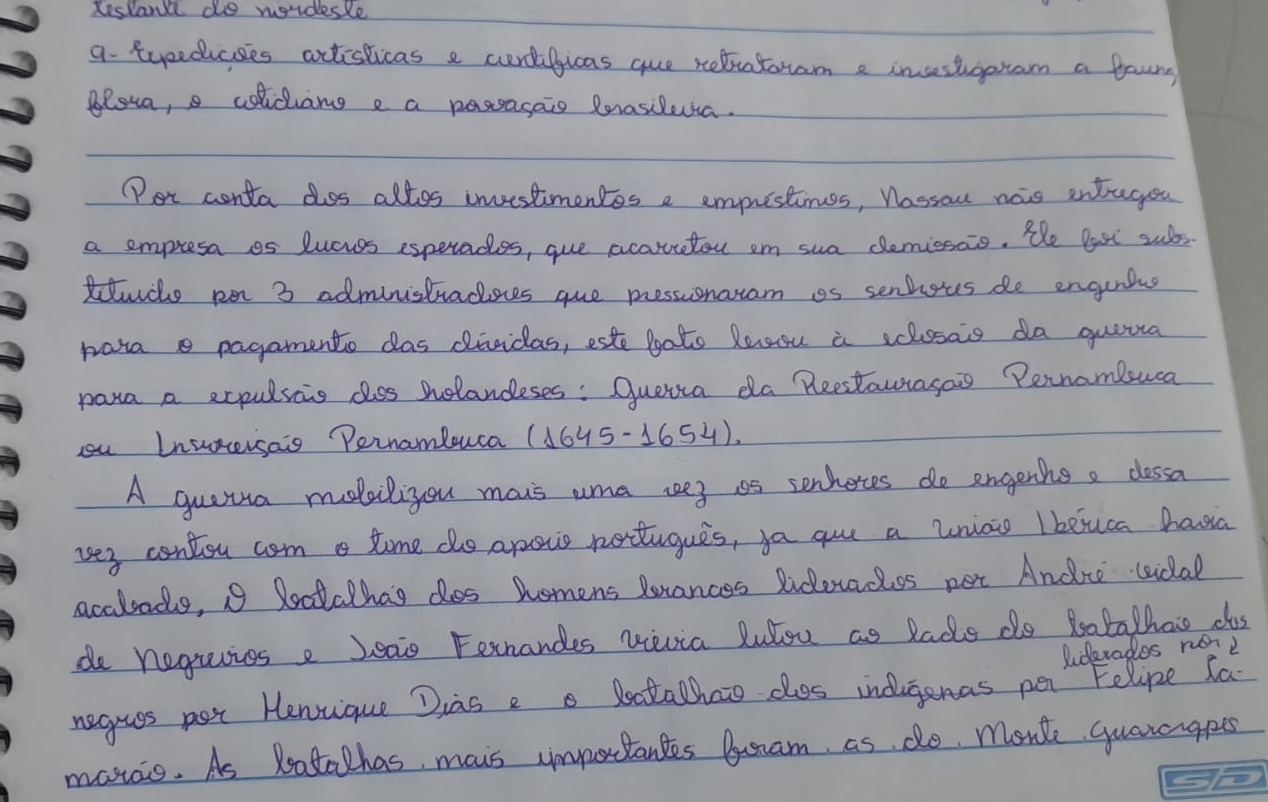 restante do nordeste
9- Expedições artísticas e científicas que retrataram e investigaram a fauna,
flora, o cotidiano e a população brasileira.
Por conta dos altos investimentos e empréstimos, Nassau não entregou
a empresa os lucros esperados, que acarretou em sua demissão. Ele foi subs-
tituido por 3 administradores que pressionaram os senhores de engenho
para o pagamento das dívidas, este fato levou à eclosão da guerra
para a expulsão dos holandeses: Guerra da Reestauração Pernambuca
ou Insurreição Pernambuca (1645-1654).
A guerra mobilizou mais uma vez os senhores de engenho e dessa
vez contou com o time do apoio português, ja que a união Ibérica havia
acabado, O batalhão dos homens brancos liderados por André vidal
de Negreiros e João Fernandes vieira lutou ao lado do batalhão dos
liderados por
negros por Henrique Dias e o batalhão dos indígenas por Felipe Ca-
marão. As batalhas mais importantes foram as do Monte Guararapes
SD